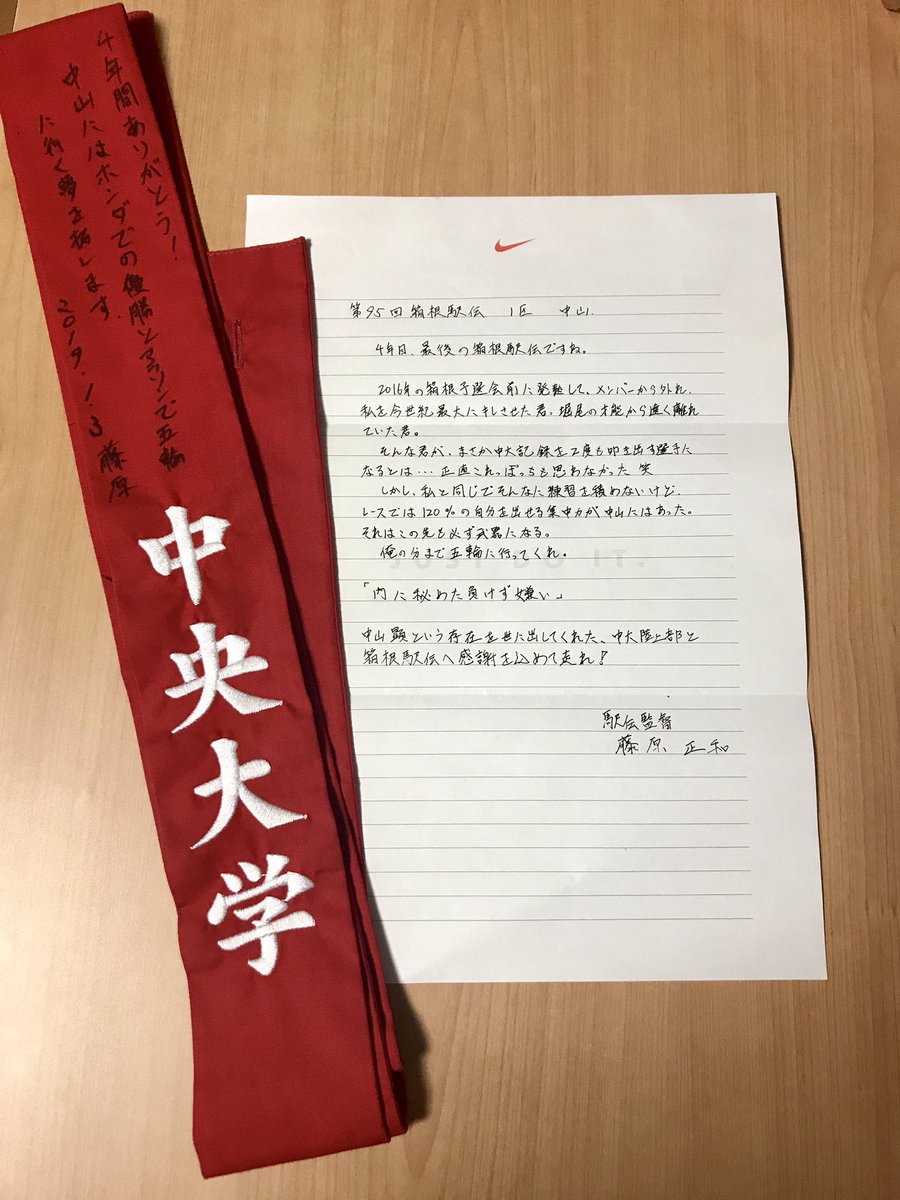 4年間ありがとう！
中山にはホンダでの優勝とマラソンで五輪
に行く夢を託します。
2019.1.3 藤原
中央大学
第95回箱根駅伝 1区 中山.
4年目、最後の箱根駅伝ですね。
2016年の箱根予選会前に発熱して、メンバーから外れ、
私を今世紀最大にキレさせた君。堀尾の才能から遠く離れ
ていた君。
そんな君が、まさか中大記録を2度も叩き出す選手に
なるとは…正直これっぽっちも思わなかった 笑
しかし、私と同じでそんなに練習を積めないけど、
レースでは120%の自分を出せる集中力が中山にはあった。
それはこの先も必ず武器になる。
俺の分まで五輪に行ってくれ。
JUST DO IT.
「内に秘めた負けず嫌い」
中山顕という存在を世に出してくれた、中大陸上部と
箱根駅伝へ感謝を込めて走れ！
駅伝監督
藤原 正和